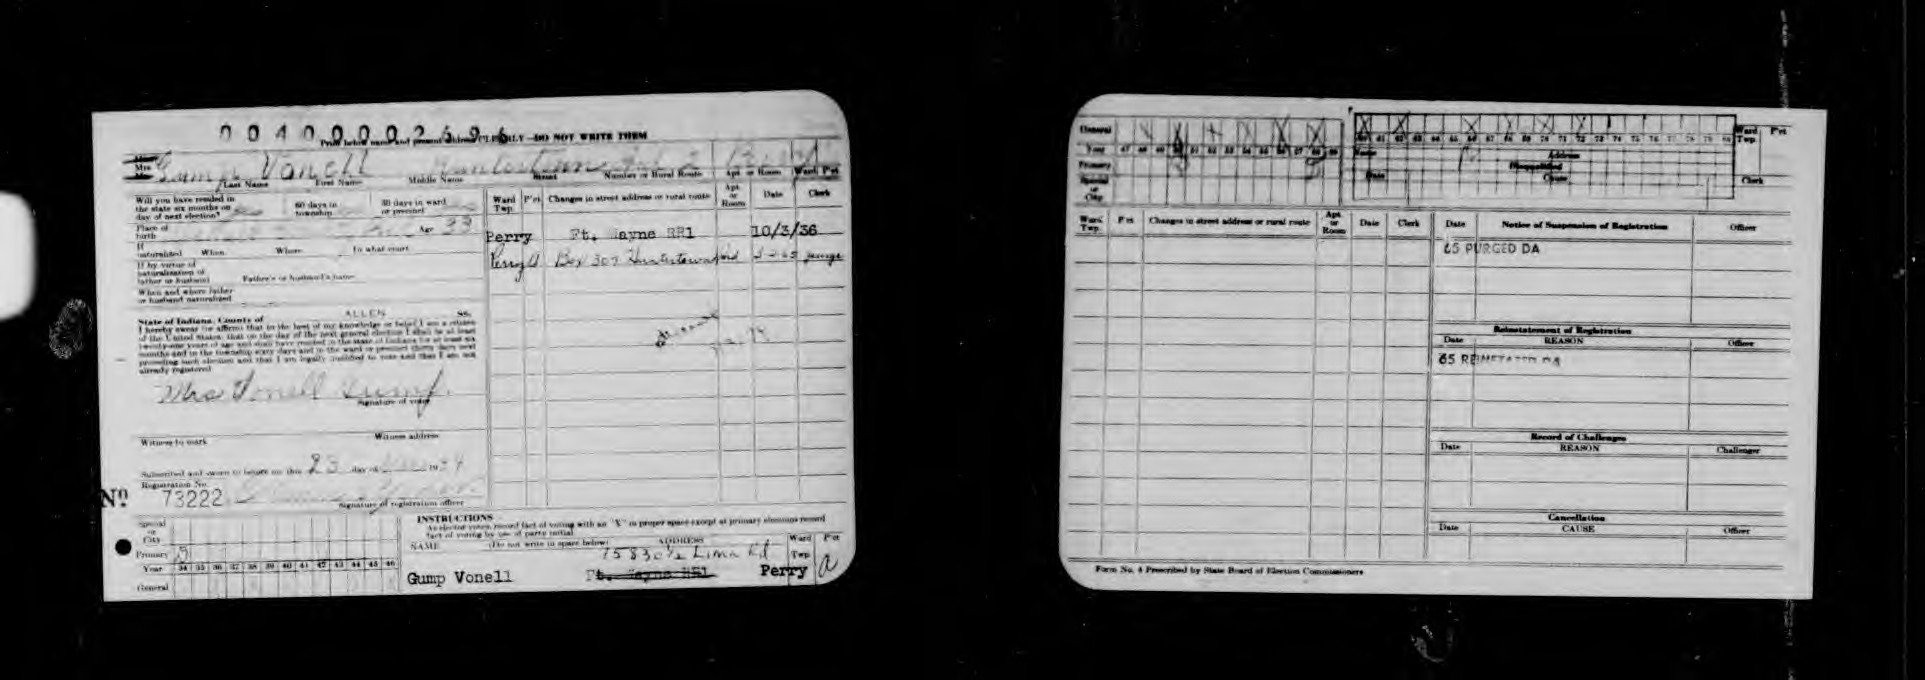 0040000296
Print below name and present address PLAINLY—DO NOT WRITE THEM
Mrs. Gump Vonell Huntertown
Last Name First Name Middle Name Street Number or Rural Route Apt. or Room Ward P'ct
Will you have resided in
the state six months on
day of next election?
60 days in
township
30 days in ward
or precinct
Place of
birth
Age 33
If
naturalized When Where In what court
If by virtue of
naturalization of
father or husband Father's or husband's name
When and where father
or husband naturalized
State of Indiana, County of ALLEN ss.
I hereby swear (or affirm) that to the best of my knowledge or belief I am a citizen
of the United States, that on the day of the next general election I shall be at least
twenty-one years of age and shall have resided in the state of Indiana for at least six
months and in the township sixty days and in the ward or precinct thirty days next
preceding such election and that I am legally qualified to vote and that I am not
already registered
Mrs Vonell Gump
Signature of voter
Witness to mark Witness address
Subscribed and sworn to before me this 23 day of 1934
Registration No.
No 73222
Signature of registration officer
Ward Twp. P'ct Changes in street address or rural route Apt. or Room Date Clerk
Perry Ft. Wayne RR1 10/3/36
Perry A Box 307 Huntertown Ind
Special
or
City
Primary D
Year 34 35 36 37 38 39 40 41 42 43 44 45 46
General
INSTRUCTIONS
As elector votes, record fact of voting with an "X" in proper space except at primary elections record
fact of voting by use of party initial.
NAME (Do not write in space below) ADDRESS Ward Twp P'ct
15830½ Lima Rd
Gump Vonell Ft. Wayne RR1 Perry A
General
Year 47 48 49 50 51 52 53 54 55 56 57 58 59 60 61 62 63 64 65 66 67 68 69 70 71 72 73 74 75 76 77 78 79 80 Ward Twp. P'ct
Primary
Special
or
City
Name Address
Disqualified
Date Cause Clerk
Ward Twp. P'ct Changes in street address or rural route Apt. or Room Date Clerk
Date Notice of Suspension of Registration Officer
65 PURGED DA
Reinstatement of Registration
Date REASON Officer
65 REINSTATED DA
Record of Challenges
Date REASON Challenger
Cancellation
Date CAUSE Officer
Form No. 4 Prescribed by State Board of Election Commissioners